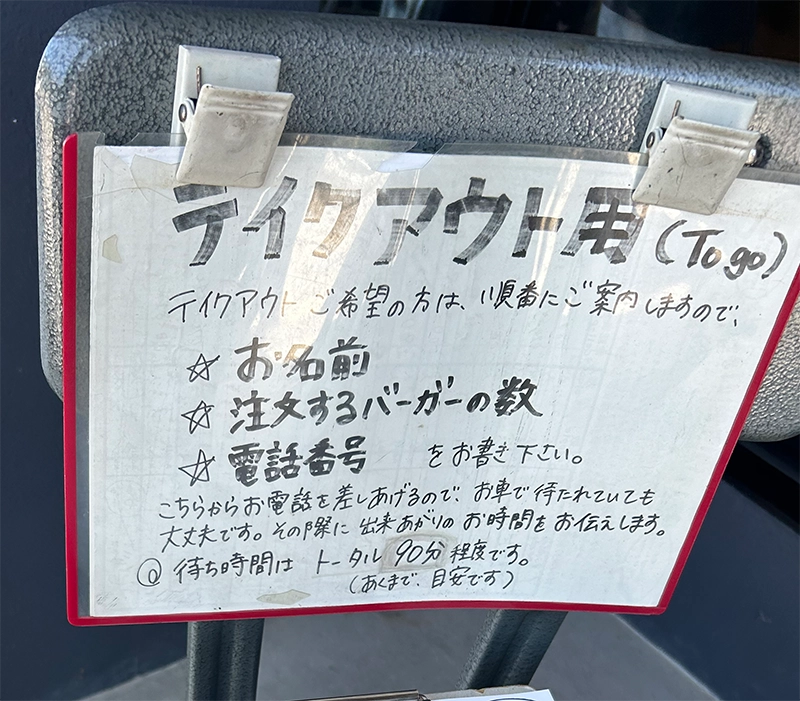 テイクアウト用(To go)
テイクアウトご希望の方は、順番にご案内しますので、
☆ お名前
☆ 注文するバーガーの数
☆ 電話番号 をお書き下さい。
こちらからお電話を差しあげるので、お車で待たれていても
大丈夫です。その際に出来あがりのお時間をお伝えします。
◎ 待ち時間は トータル 90分 程度です。
(あくまで、目安です)